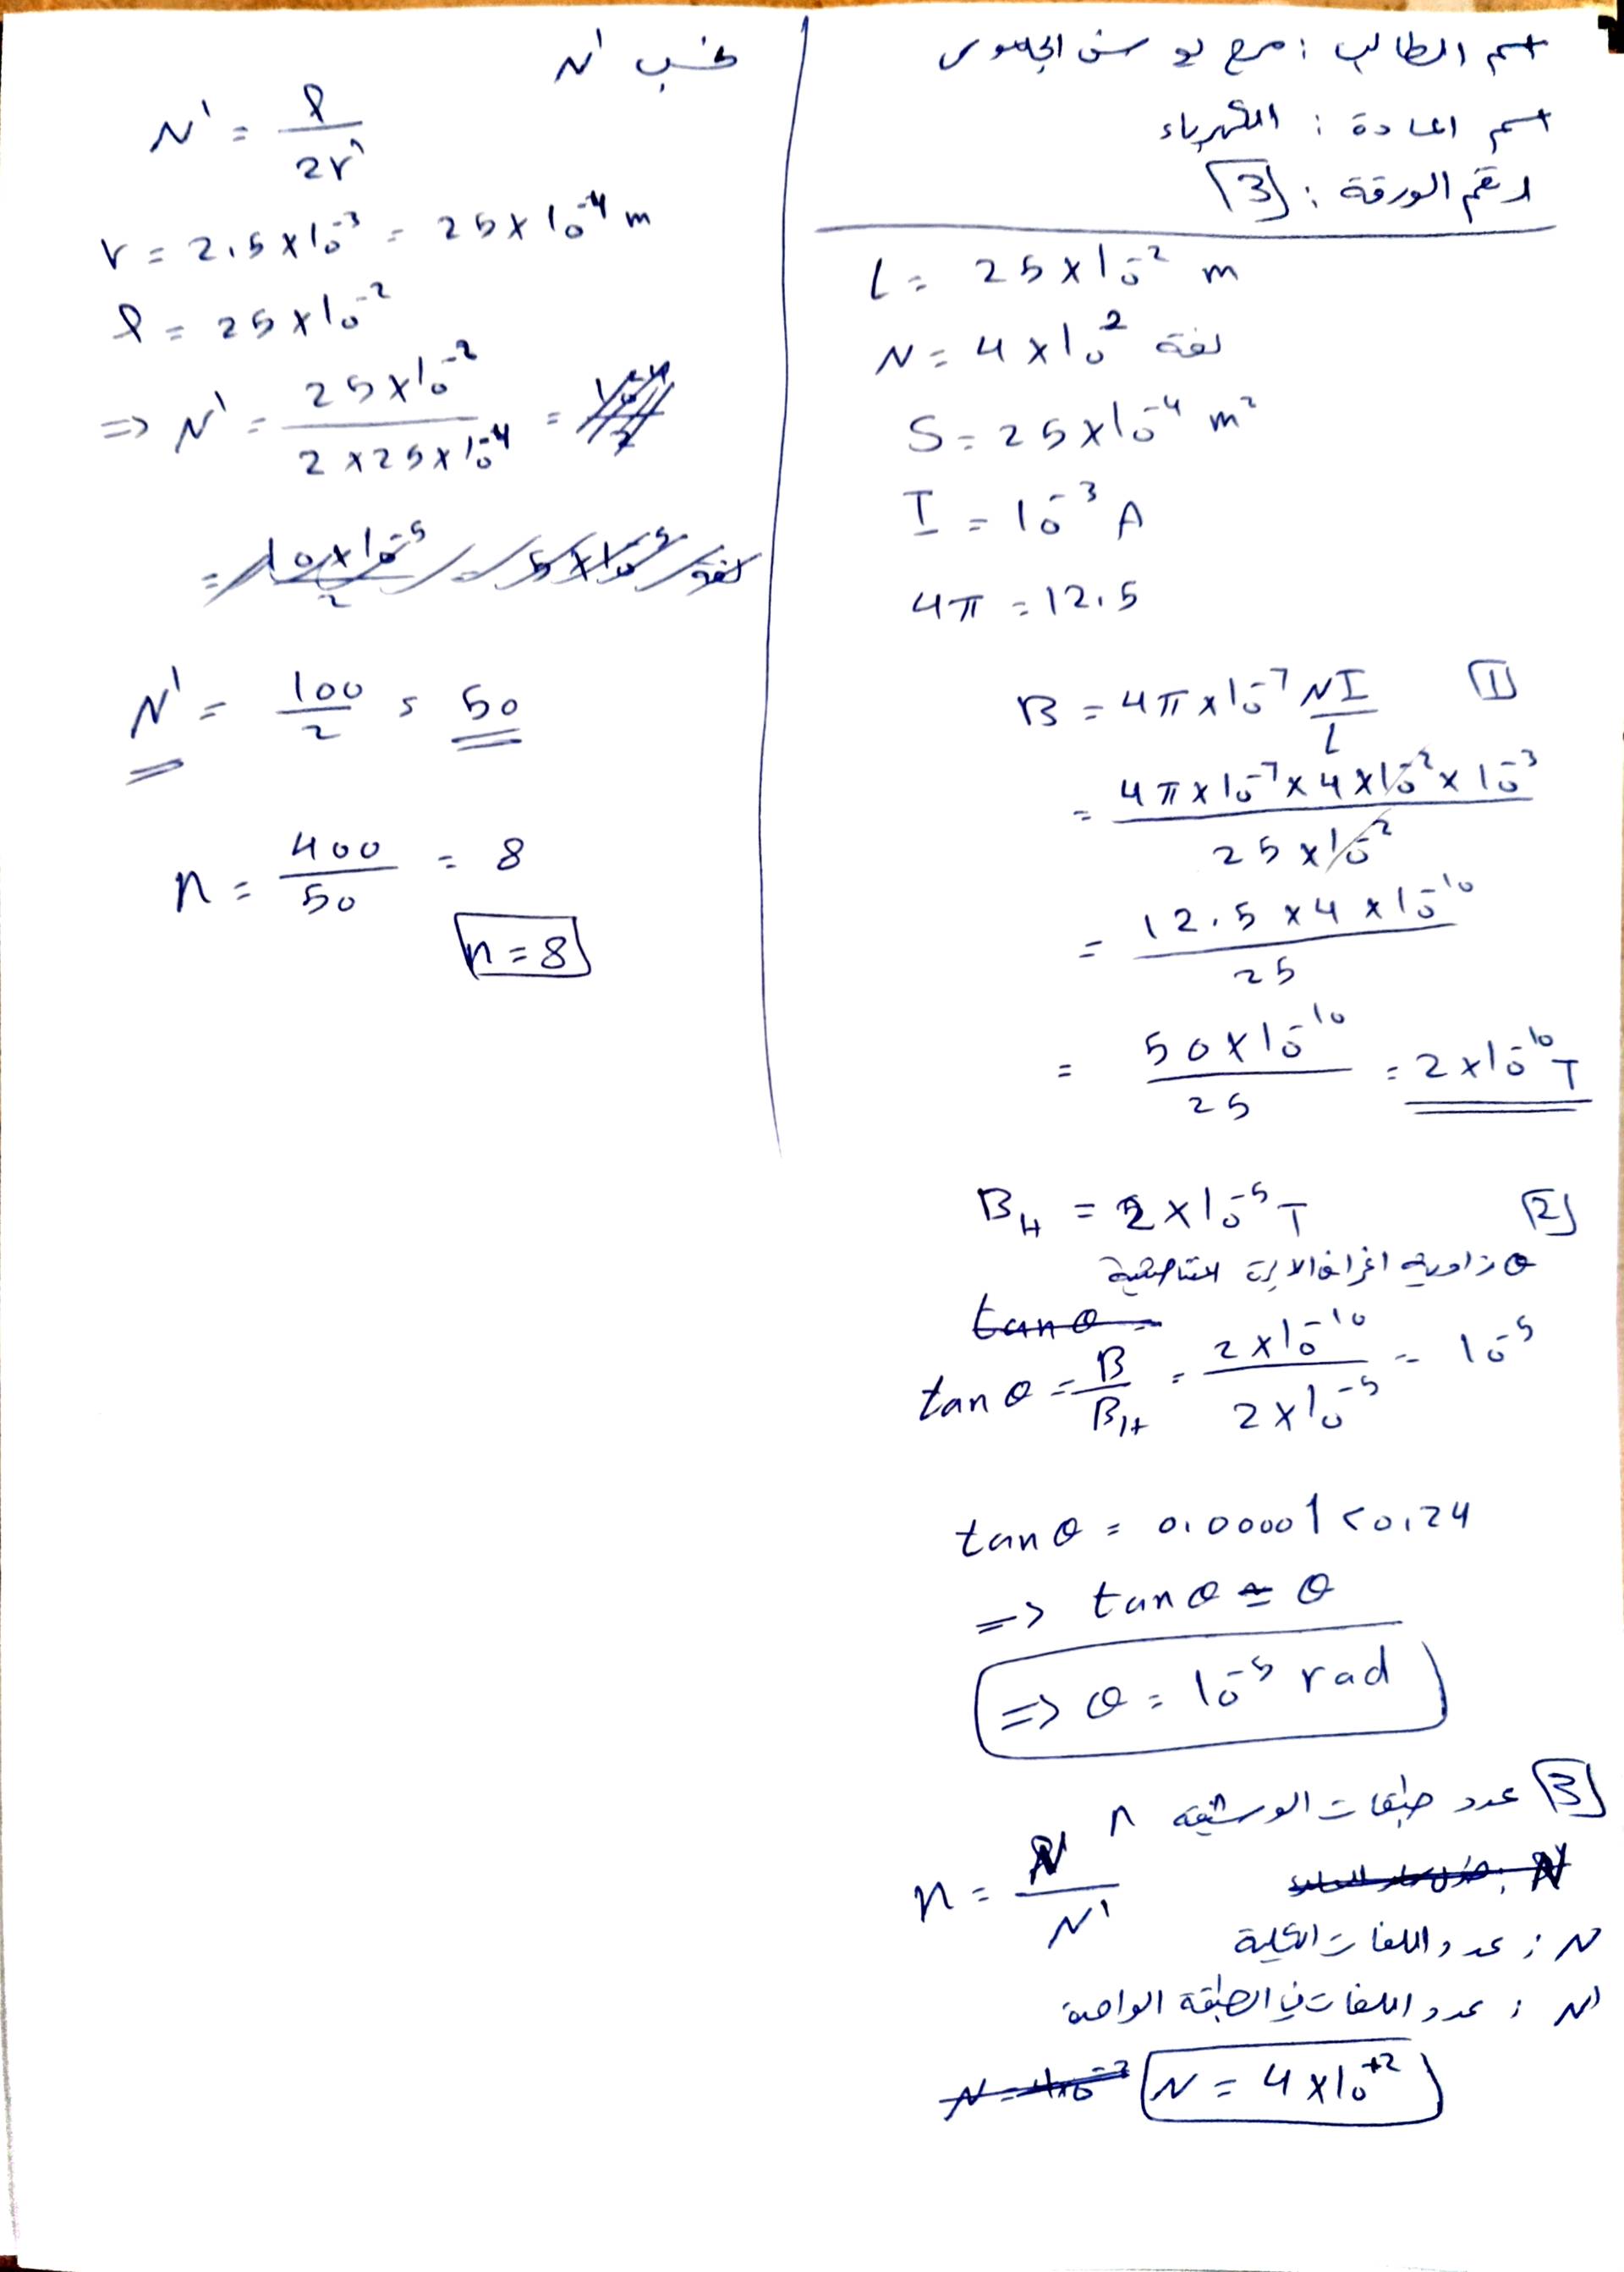 اسم الطالب : مرح
اسم المادة : الكهرباء
رقم الورقة : 3
L = 25 × 10^-2 m
N = 4 × 10^2 لفة
S = 25 × 10^-4 m²
I = 10^-3 A
4π = 12.5
1
B = 4π × 10^-7 NI / L
= 4π × 10^-7 × 4 × 10^-2 × 10^-3 / 25 × 10^-2
= 12.5 × 4 × 10^-10 / 25
= 50 × 10^-10 / 25 = 2 × 10^-10 T
2
B_H = 2 × 10^-5 T
θ زاوية انحراف الابرة المغناطيسية
tan θ =
tan θ = B / B_H = 2 × 10^-10 / 2 × 10^-5 = 10^-5
tan θ = 0.00001 < 0.24
=> tan θ ≃ θ
=> θ = 10^-5 rad
3 عدد طبقات الوشيعة n
n = N / N'
N : عدد اللفات الكلية
N' : عدد اللفات في الطبقة الواحدة
N = 4 × 10^+2
نحسب N'
N' = l / 2r'
r = 2.5 × 10^-3 = 25 × 10^-4 m
l = 25 × 10^-2
=> N' = 25 × 10^-2 / 2 × 25 × 10^-4 =
= 10 × 10^-5 / 2 = 5 × 10^-5 لفة
N' = 100 / 2 = 50
n = 400 / 50 = 8
n = 8